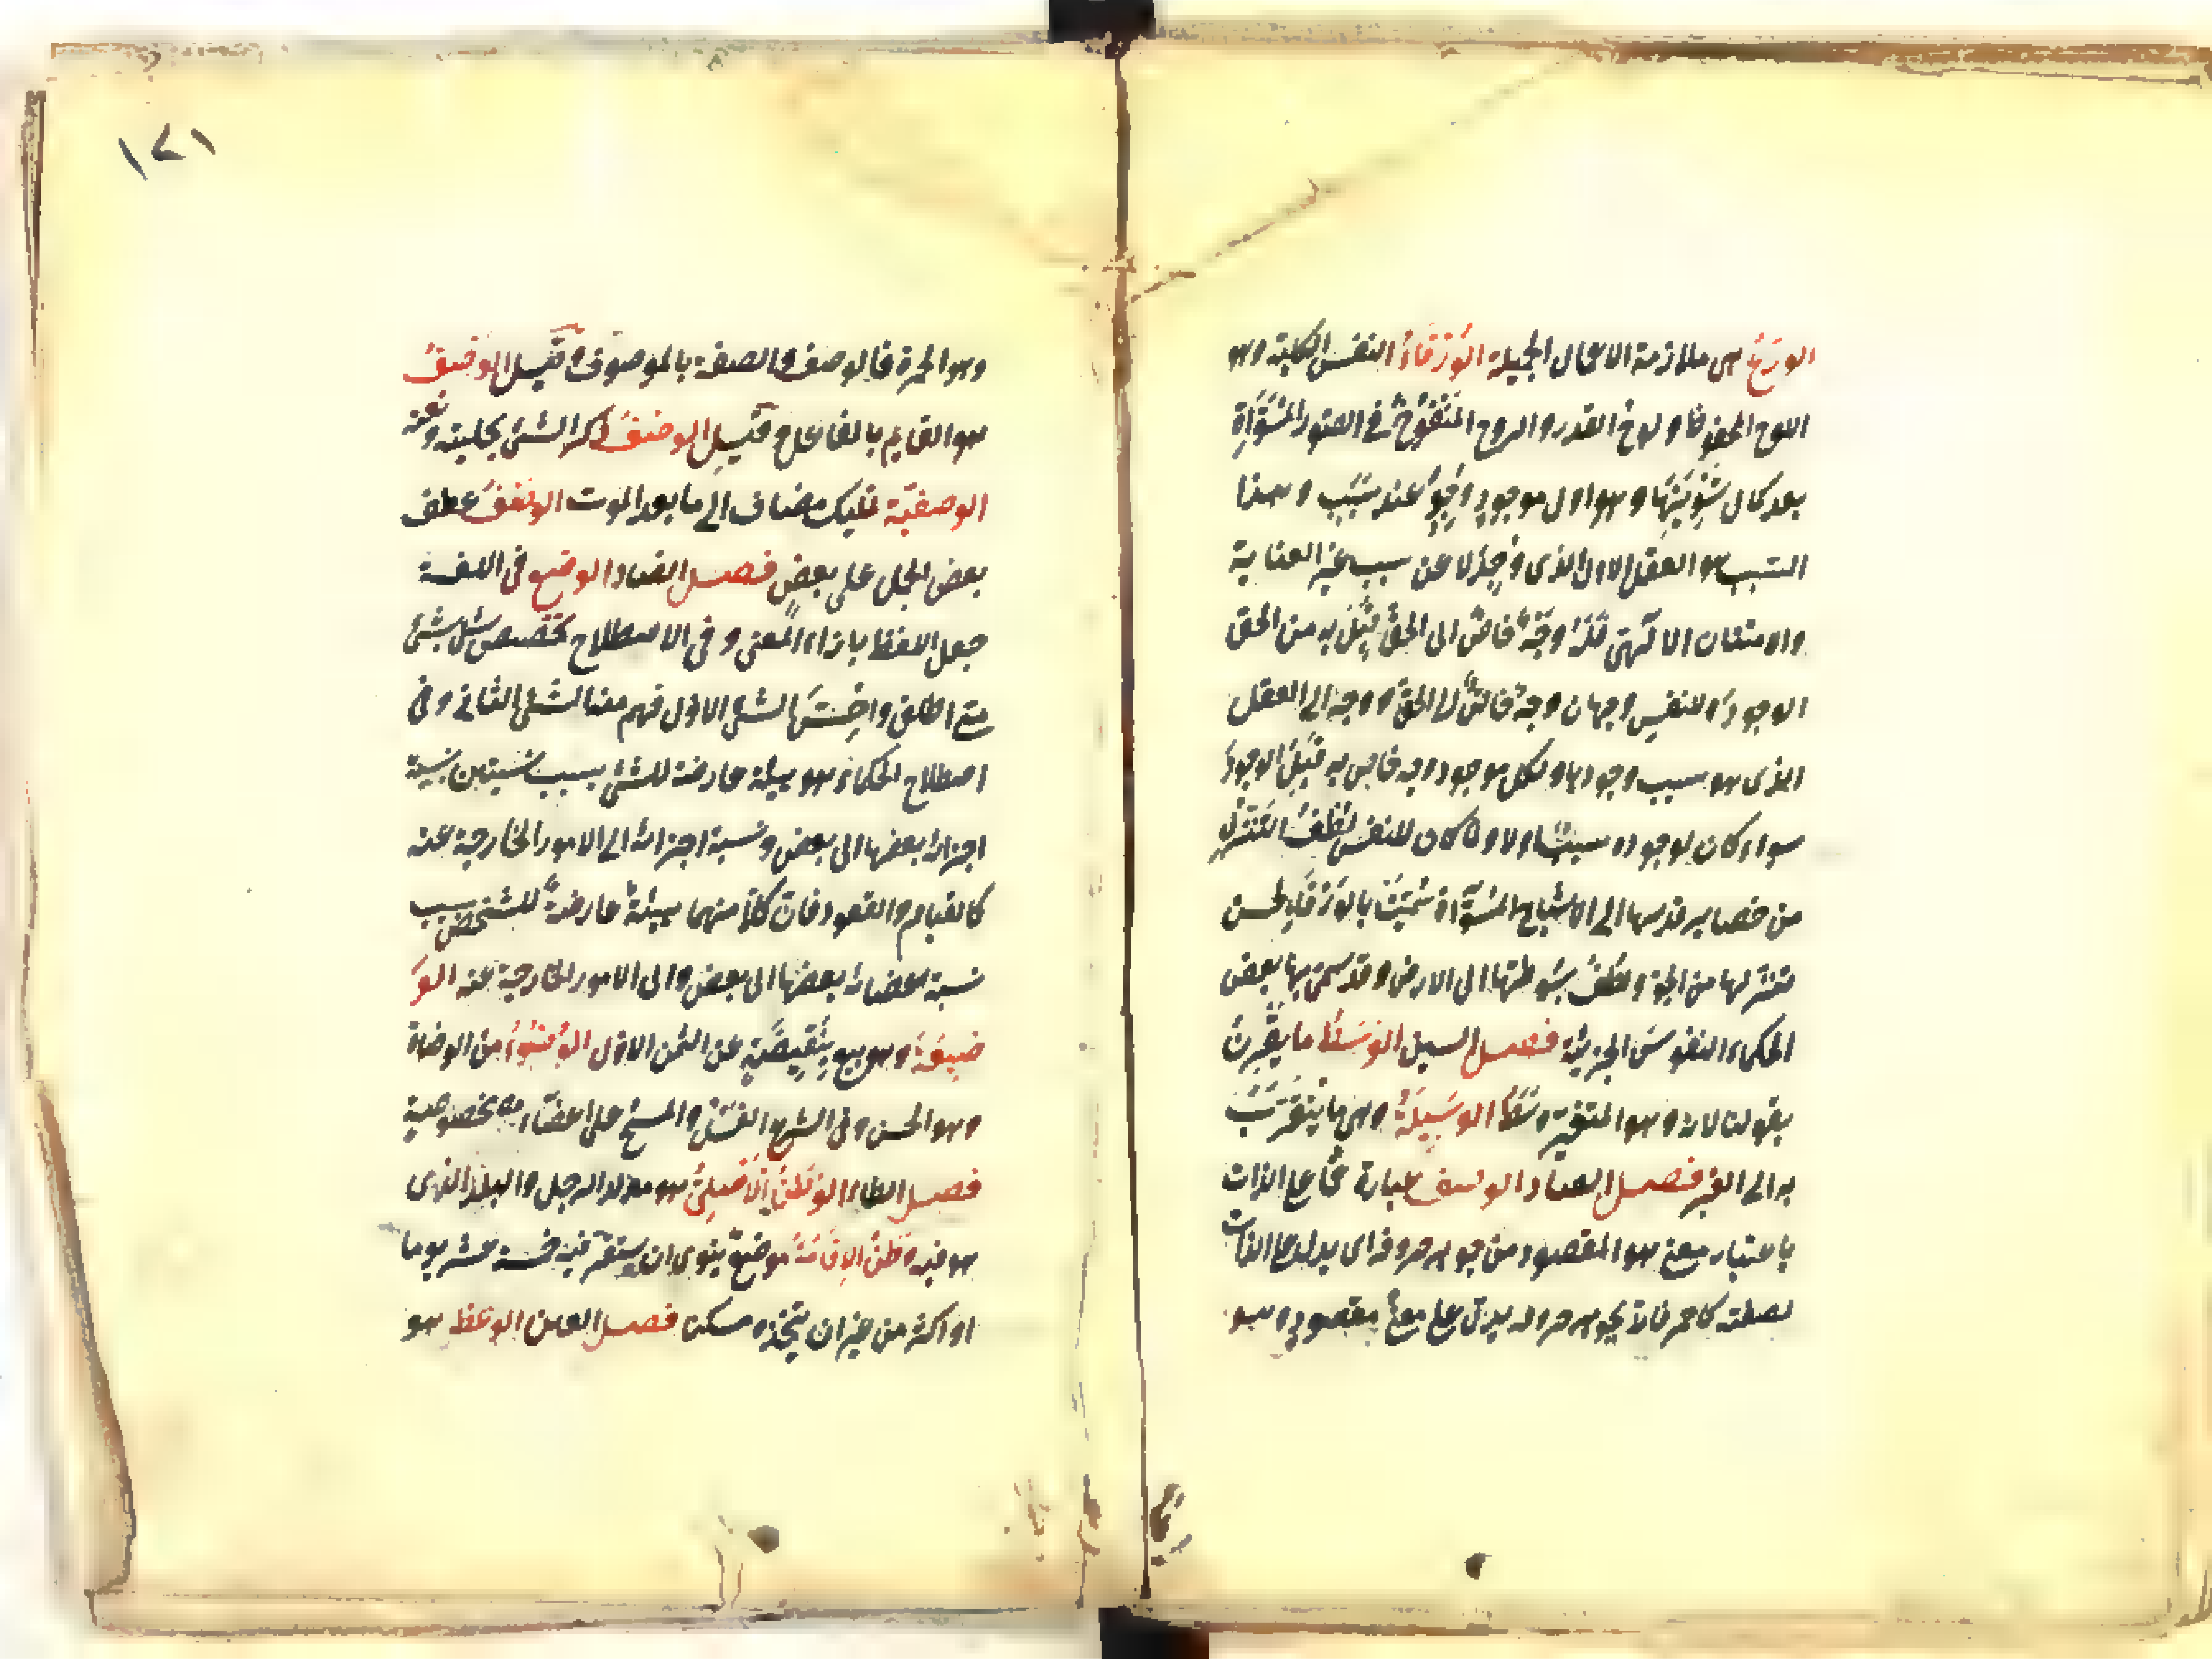 الورع هى ملازمة الاعمال الجميلة الورقاء النفس الكلية وهو
اللوح المحفوظ ولوح القدر والروح المنفوخ فى الصور المسوّاة
بعد كمال تسويتها وهو اول موجود وجد عند سبب وهذا
السبب هو العقل الاول الذى وجد لا عن سبب غير العناية
والامتنان الالٓهى فله وجه خاص الى الحق قبل به من الحق
الوجود وللنفس وجهان وجه خاص الى الحق ووجه الى العقل
الذى هو سبب وجودها ولكل موجود وجه خاص به قبل الوجود
سواء كان لوجوده سببا اولا ولما كان للنفس لطف التنزل
من حضاير قدسها الى الاشباح المسوّاة سميت بالورقاء لحسن
تنزلها من الجو ولطف بسوطها الى الارض وقد سمى بها بعض
الحكماء النفوس الجزئية فصل السين الوسط ما يقترن
بقولنا لانه وهو المتغير وسطا الوسيلة وهى ما يتقرب
به الى الغير فصل الصاد الوصف عبارة عما على الذات
باعتبار معنى هو المقصود من جوهر حروفه اى يدل على الذات
بصفة كاحمر فانه بجوهر حروفه يدل على معنى مقصود وهو
١٢١
وهو الحمرة فالوصف والصفة بالموصوف وقيل الوصف
هو القايم بالفاعل وقيل الوصف ذكر الشئ بحليته ونعته
الوصية تمليك مضاف الى ما بعد الموت الوصف عطف
بعض الجمل على بعض فصل الضاد الوضع فى اللغة
جعل اللفظ بازاء المعنى وفى الاصطلاح تخصيص شئ بشئ
متى اطلق واحس الشئ الاول فهم منه الشئ الثانى وفى
اصطلاح الحكماء هو هيئة عارضة للشئ بسبب نسبتين نسبة
اجزائه بعضها الى بعض ونسبة اجزائه الى الامور الخارجة عنه
كالقيام والقعود فان كلا منهما هيئة عارضة للشخص بسبب
نسبة اعضائه بعضها الى بعض والى الامور الخارجة عنه الو
ضيعة وهو بيع بنقيصة عن الثمن الاول الوضوء من الوضاة
وهو الحسن وفى الشرع الغسل والمسح على اعضاء مخصوصة
فصل الطاء الوطن الاصلى هو مولد الرجل والبلد الذى
هو فيه وطن الاقامة موضع ينوى ان يستقر فيه خمسة عشر يوما
او اكثر من غير ان يتخذه مسكنا فصل العين الوعظ هو